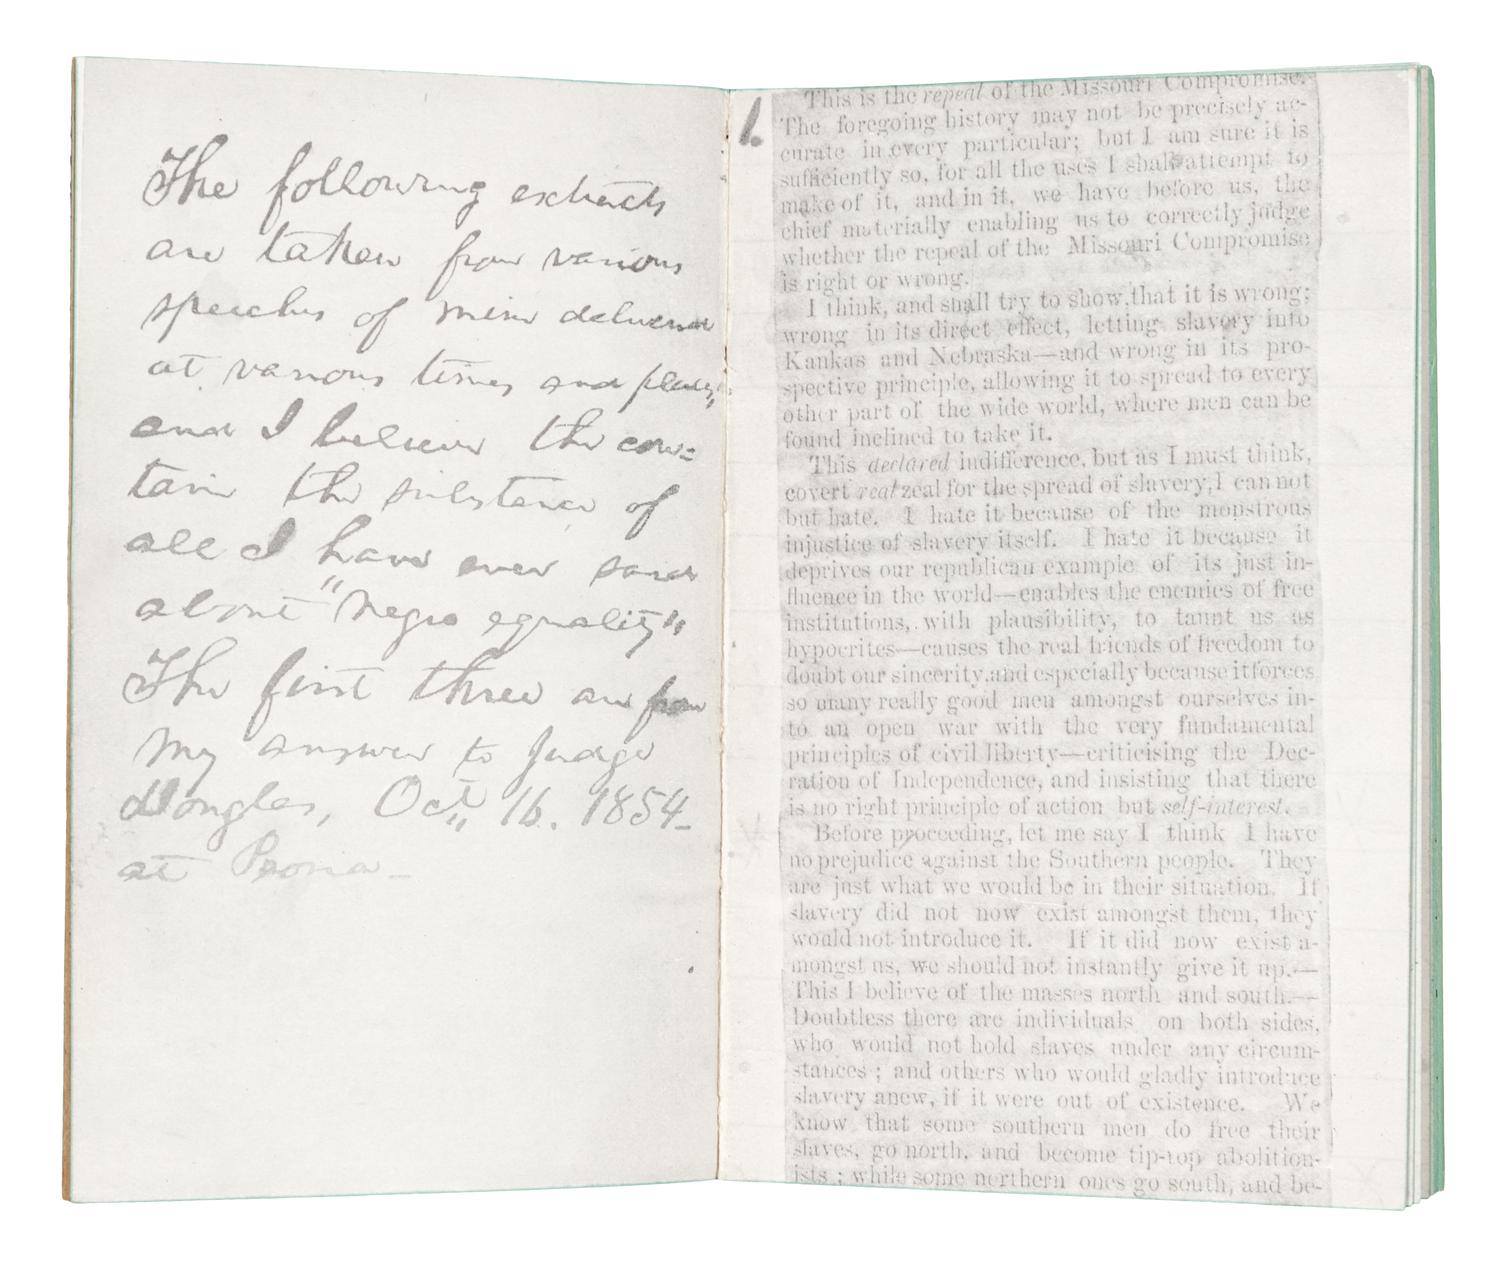 The following extracts
are taken from various
speeches of mine delivered
at various times and places,
and I believe the con=
tain the substance of
all I have ever said
about "negro equality"
The first three are from
my answer to Judge
Douglas, Oct,, 16. 1854-
at Peoria-
1.
This is the repeal of the Missouri Compromise.
The foregoing history may not be precisely ac-
curate in every particular; but I am sure it is
sufficiently so, for all the uses I shall attempt to
make of it, and in it, we have before us, the
chief materially enabling us to correctly judge
whether the repeal of the Missouri Compromise
is right or wrong.
I think, and shall try to show, that it is wrong;
wrong in its direct effect, letting slavery into
Kankas and Nebraska—and wrong in its pro-
spective principle, allowing it to spread to every
other part of the wide world, where men can be
found inclined to take it.
This declared indifference, but as I must think,
covert real zeal for the spread of slavery, I can not
but hate. I hate it because of the monstrous
injustice of slavery itself. I hate it because it
deprives our republican example of its just in-
fluence in the world—enables the enemies of free
institutions, with plausibility, to taunt us as
hypocrites—causes the real friends of freedom to
doubt our sincerity, and especially because it forces
so many really good men amongst ourselves in-
to an open war with the very fundamental
principles of civil liberty—criticising the Dec-
ration of Independence, and insisting that there
is no right principle of action but self-interest.
Before proceeding, let me say I think I have
no prejudice against the Southern people. They
are just what we would be in their situation. If
slavery did not now exist amongst them, they
would not introduce it. If it did now exist a-
mongst us, we should not instantly give it up.—
This I believe of the masses north and south.—
Doubtless there are individuals on both sides,
who would not hold slaves under any circum-
stances; and others who would gladly introduce
slavery anew, if it were out of existence. We
know that some southern men do free their
slaves, go north, and become tip-top abolition-
ists; while some northern ones go south, and be-